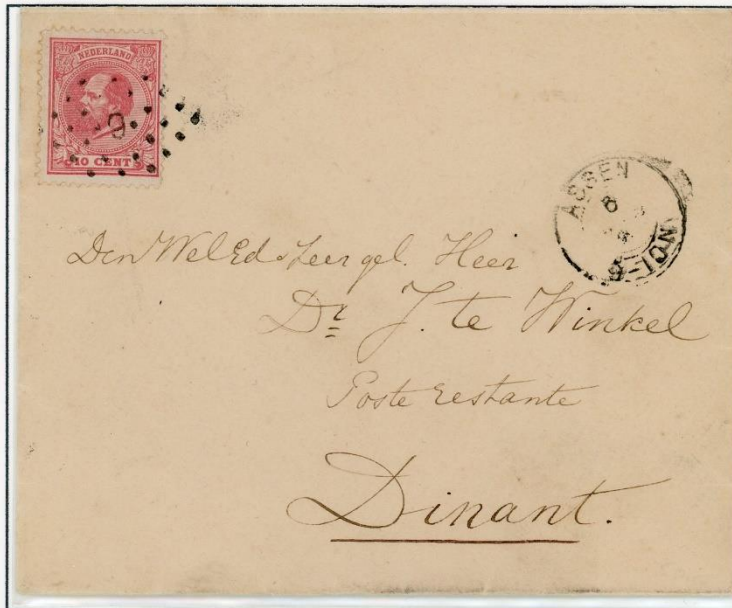 NEDERLAND
9
10 CENT
ASSEN
8
9-10N
Den WelEd. Zeer gel. Heer
Dr J. te Winkel
Poste restante
Dinant.